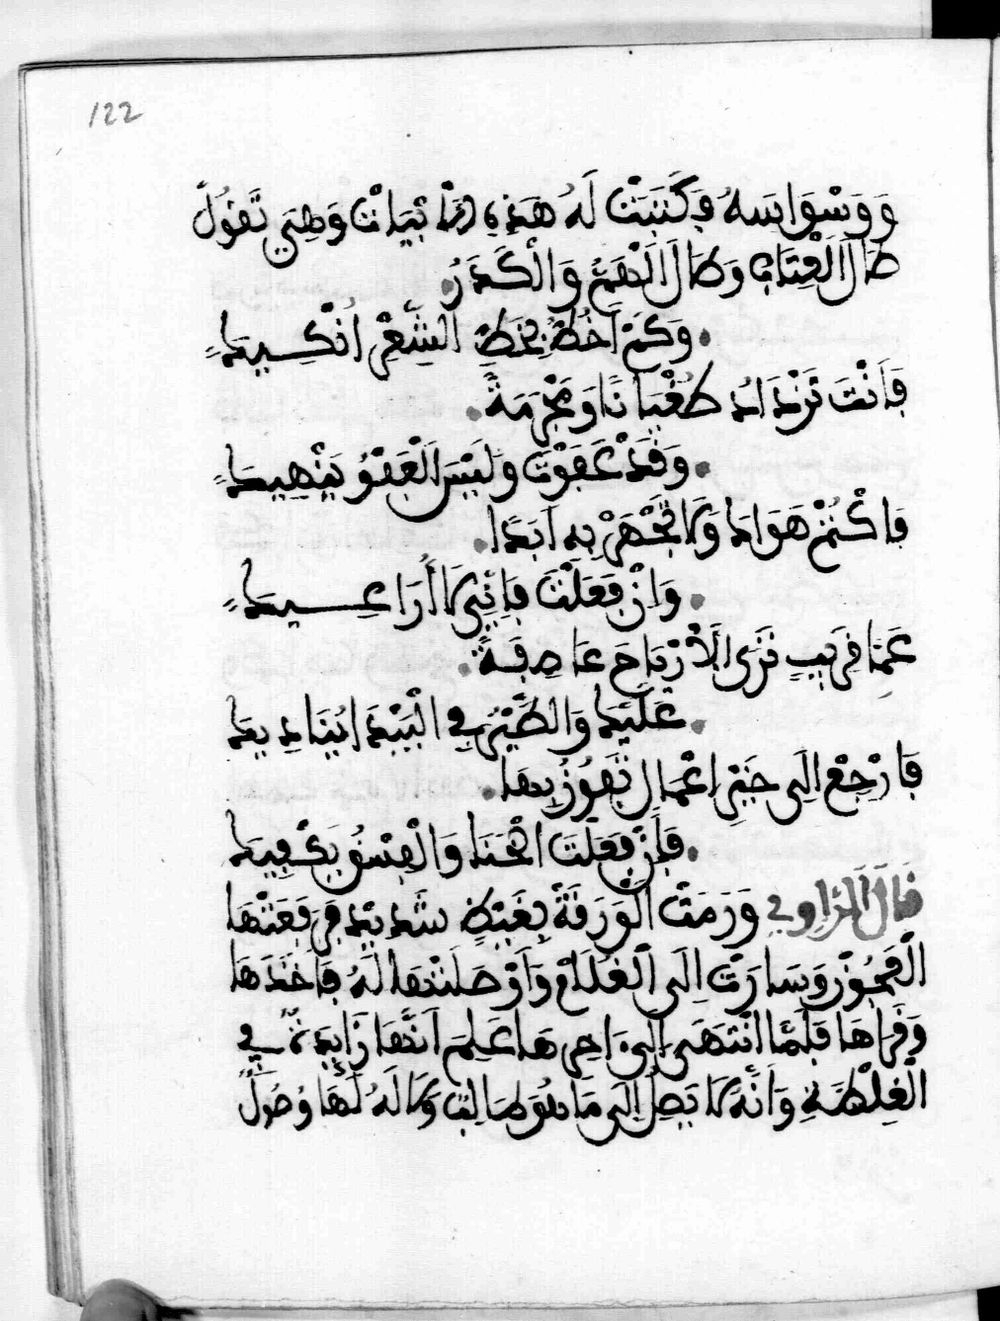 122
وَوَسْوَاسِهُ فَكَتَبَتْ لَهُ هَذِهِ الْأَبْيَاتْ وَهِيَ تَقُولُ
طَالَ الْعِتَابِ وَطَالَ الْهَمُّ وَالْكَدَرُ
وَكَمْ اَخُطُّ بِخَطِّ الشِّعْرِ اَنْكِيكَ
فَاَنْتَ تَزْدَادُ طُغْيَانًا وَمَجْرَمَةً
وَقَدْ عَفَوْتُ وَلَيْسَ الْعَفْوُ يَنْهِيكَ
فَاكْتُمْ هَوَاكَ وَلَا تَجْهَرْ بِهِ اَبَدًا
وَاِنْ فَعَلْتَ فَاِنِّي لَا أُرَاعِيكَ
عَمَّا قَرِيبٍ تَرَى الْاَرْيَاحَ عَاصِفَةً
عَلَيْكَ وَالطَّيْرُ فِي الْبَيْدَا يُنَادِيكَ
فَارْجِعْ اِلَى خَيْرِ اعْمَالٍ تَفُوزُ بِهَا
فَاِنْ فَعَلْتَ الْخَنَا وَالْفِسْقُ يَكْفِيكَ
قَالَ الرَّاوِي وَرَمَتْ الْوَرَقَةُ بِغَيْظٍ شَدِيدٍ فَرَفَعَتْهَا
الْعَجُوزْ وَسَارَتْ اِلَى الْغُلَامْ وَاَوْصَلَتْهَا لَهُ فَاخَذَهَا
وَقَرَاهَا فَلَمَّا انْتَهَى اِلَى اخِرِهَا عَلِمَ اَنَّهَا زَايِدَةٌ فِي
الْغِلْظَةِ وَاَنَّهُ لَا يَصِلُ اِلَى مَا هُوَ طَالِبْ وَلَا لَهُ لَهَا وُصُولٌ